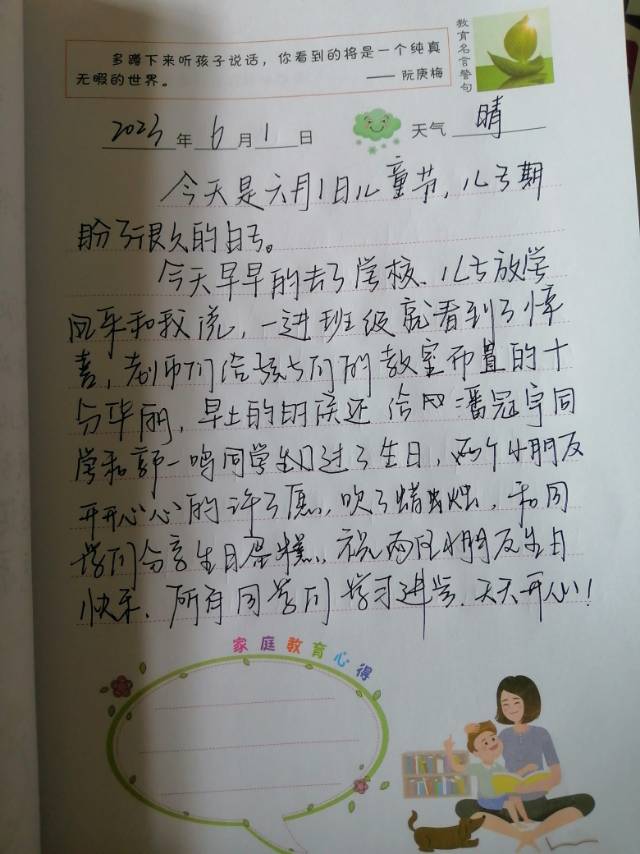 多蹲下来听孩子说话，你看到的将是一个纯真
无暇的世界。 —— 阮庚梅
教育名言警句
2023年6月1日 天气 晴
今天是六月1日儿童节，儿子期
盼了很久的日子。
今天早早的去了学校、儿子放学
回来和我说，一进班级就看到了惊
喜，老师们给孩子们的教室布置的十
分华丽，早上的时候还给 潘冠宇同
学和郭一鸣同学们过了生日，两个小朋友
开开心心的许了愿，吹了蜡烛，和同
学们分享生日蛋糕，祝两位小朋友生日
快乐、所有同学们学习进步、天天开心！
家庭教育心得